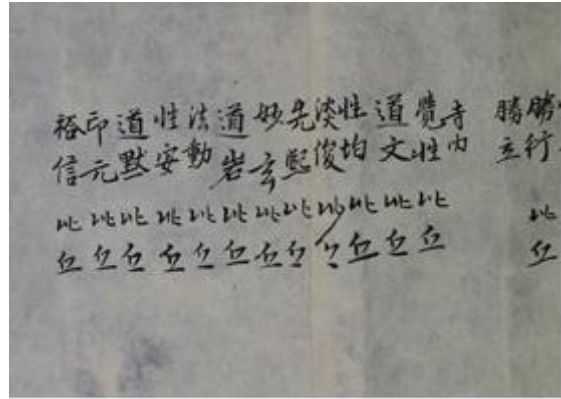 勝行比丘
勝立
寺內
覺性比丘
道文比丘
性均比丘
淡俊比丘
先熙比丘
妙玄比丘
道岩比丘
法動比丘
性安比丘
道默比丘
印元比丘
裕信比丘